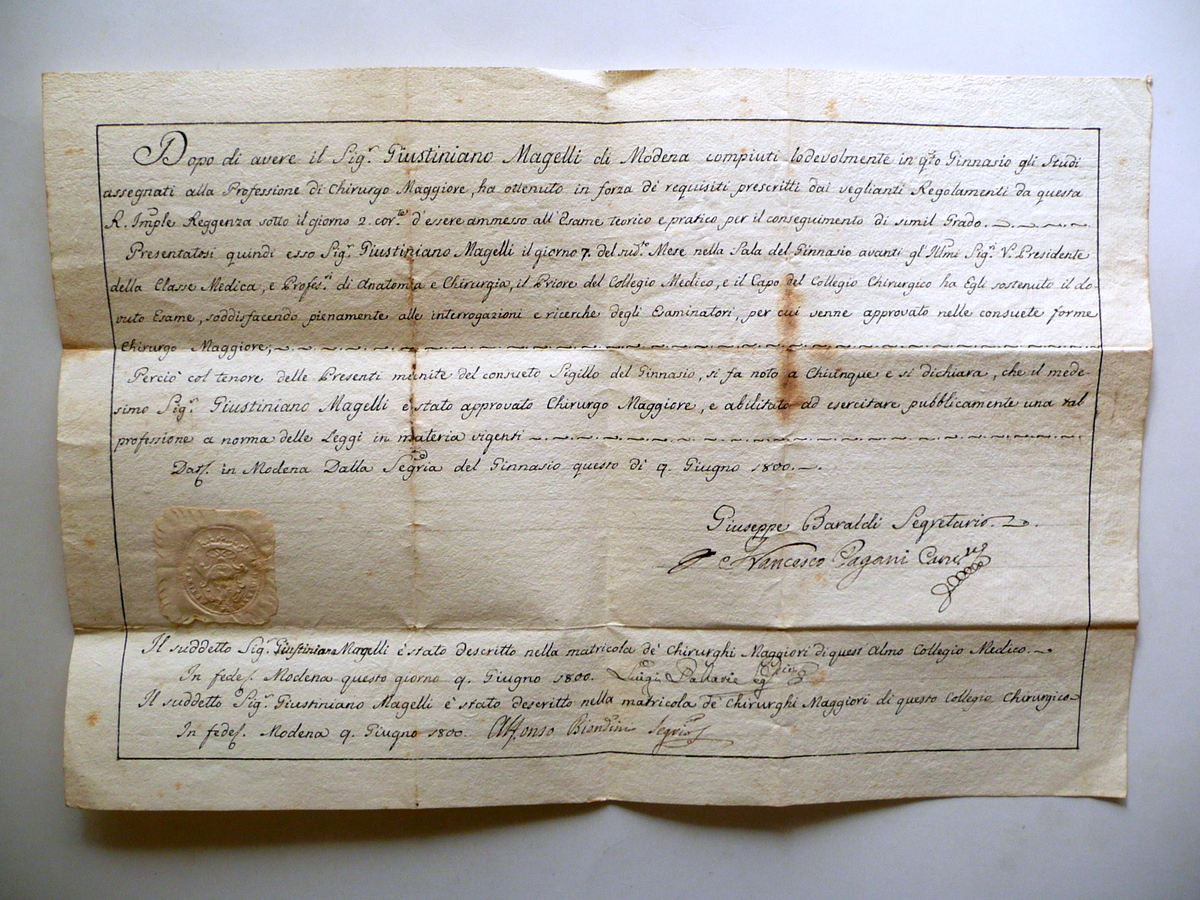 Dopo di avere il Sig.r Giustiniano Magelli di Modena compiuti lodevolmente in q.to Ginnasio gli Studi
assegnati alla Professione di Chirurgo Maggiore, ha ottenuto in forza de' requisiti prescritti dai veglianti Regolamenti da questa
R. Imple Reggenza sotto il giorno 2. cor.te d'essere ammesso all'Esame teorico e pratico per il conseguimento di simil Grado.
Presentatosi quindi esso Sig.r Giustiniano Magelli il giorno 7. del sud.to Mese nella Sala del Ginnasio avanti gl'Illmi Sig.ri V. Presidente
della Classe Medica, e Profes.ri di Anatomia e Chirurgia, il Priore del Collegio Medico, e il Capo del Collegio Chirurgico ha Egli sostenuto il do-
vuto Esame, soddisfacendo pienamente alle interrogazioni e ricerche degli Esaminatori, per cui venne approvato nelle consuete forme
Chirurgo Maggiore;
Perciò col tenore delle Presenti munite del consueto Sigillo del Ginnasio, si fa noto a Chiunque e si dichiara, che il mede-
simo Sig.r Giustiniano Magelli è stato approvato Chirurgo Maggiore, e abilitato ad esercitare pubblicamente una tal
professione a norma delle Leggi in materia vigenti
Dat. in Modena Dalla Segria del Ginnasio questo dì 9. Giugno 1800.
Giuseppe Baraldi Segretario
Francesco Pagani Canc.re
Il suddetto Sig.r Giustiniano Magelli è stato descritto nella matricola de' Chirurghi Maggiori di quest'Almo Collegio Medico.
In fede. Modena questo giorno 9. Giugno 1800. Luigi
Il suddetto Sig.r Giustiniano Magelli è stato descritto nella matricola de' Chirurghi Maggiori di questo Collegio Chirurgico
In fede. Modena 9. Giugno 1800. Alfonso Biondini Segrio